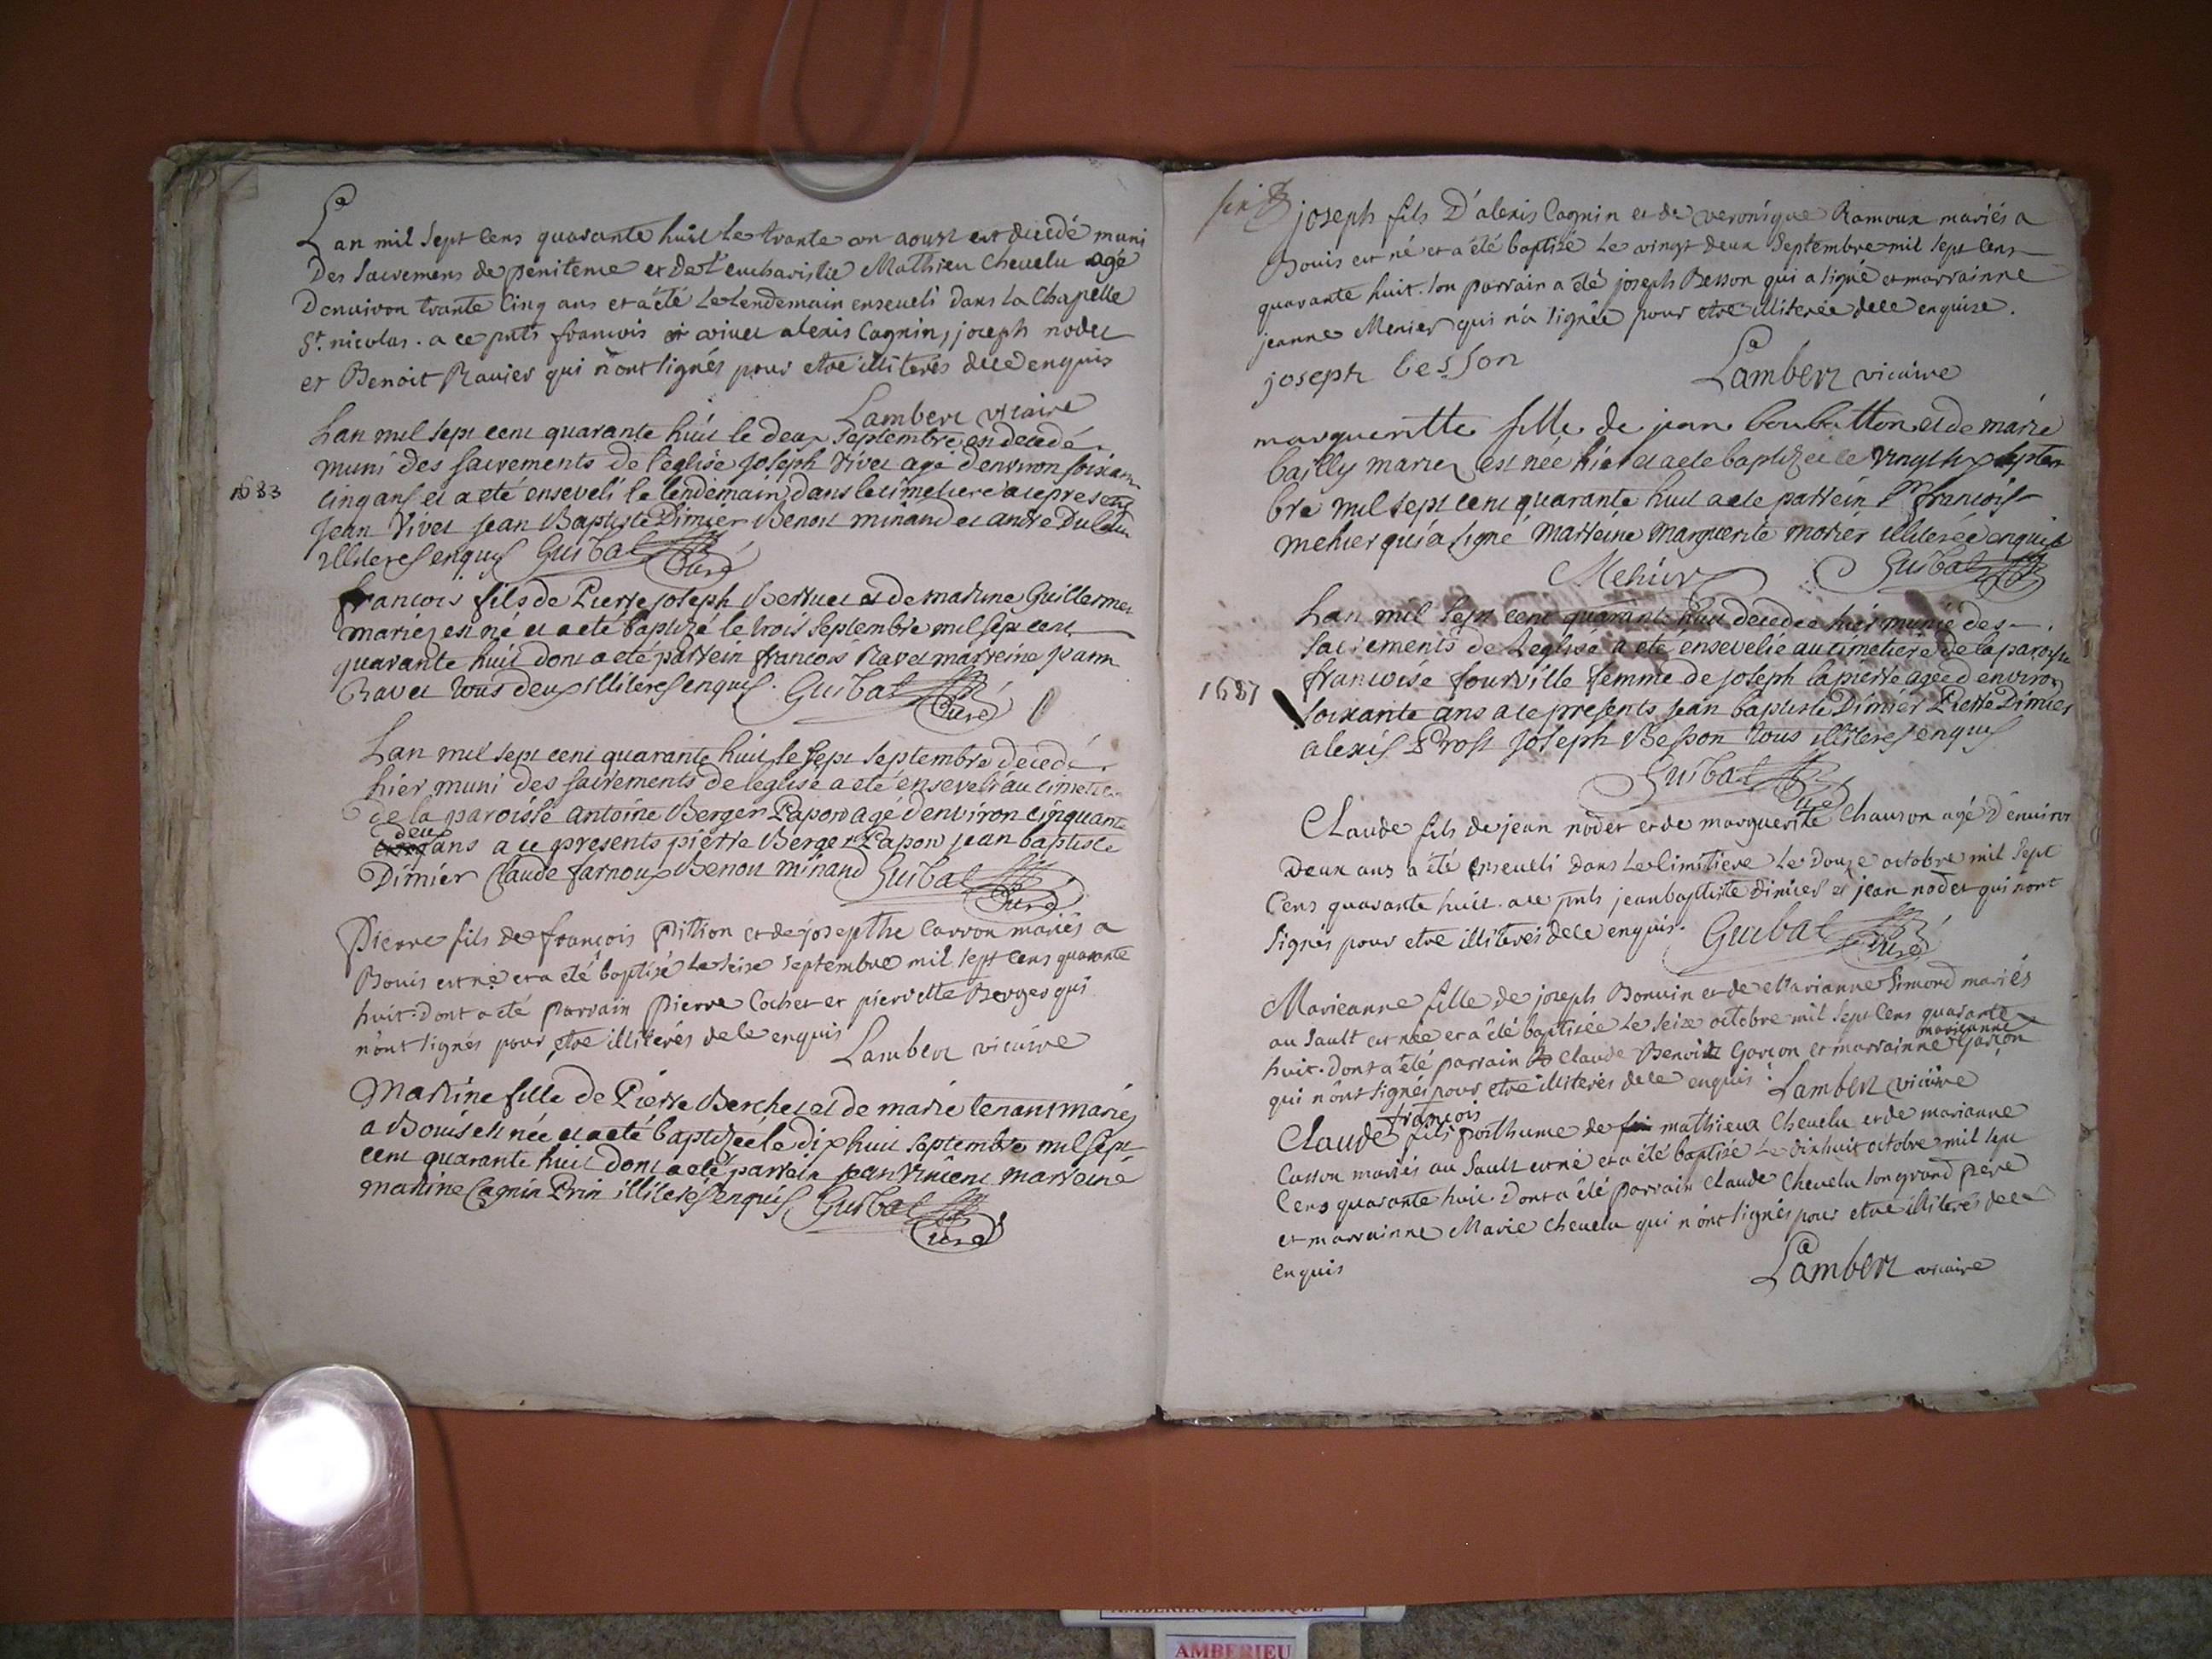 Lan mil sept cens quarante huit le trante un aoust est decedé muni
Des sacremens de penitense et de l'eucharistie Mathieu Chevelu agé
Denviron trante cinq ans et a été le lendemain enseveli dans la Chapelle
St. nicolas. a ce pnts francois vivet alexis Cagnin, joseph nodet
et Benoit Ravier qui n'ont signés pour etre illiterés de ce enquis
Lambert vicaire
Lan mil sept cent quarante huit le deux septembre est decedé
muni des sacrements de l'eglise Joseph Vivet agé d'environ soixante
1683
cinq ans et a eté enseveli le lendemain dans le cimetiere a ce presents
Jean Vivet Jean Baptiste Dimier Benoit minand et andré
illiteres enquis Guibal
Curé
francois fils de Pierre joseph Berruet et de matrine Guillermet
mariez est né et a eté baptizé le trois septembre mil sept cent
quarante huit dont a eté parrein francois Ravet marreine
Ravet tous deux illiteres enquis. Guibal
Curé
Lan mil sept cent quarante huit le sept septembre decedé
hier muni des sacrements de leglise a eté enseveli au cimetiere
de la paroisse antoine Berger Papon agé d'environ cinquante
deux
ans a ce presents pierre Berger Papon jean baptiste
Dimier Claude farnoux Benoit minand Guibal
Curé
Pierre fils de françois Pition et de josepthe Carron mariés a
Bouis est né et a été baptisé le seize septembre mil sept cens quarante
huit. Dont a été parrain Pierre Cochet et pierrette Berger qui
n'ont signés pour etre illiterés de ce enquis Lambert vicaire
Martine fille de Pierre Berchet et de marie tenant mariez
a Bouis est née et a eté baptizée le dix huit septembre mil sept
cent quarante huit dont a eté parrein jean Vincent marreine
martine Cagnin Prin illiteres enquis Guibal
Curé
joseph fils D'alexis Cagnin et de veronique Ramoux mariés a
Bouis est né et a été baptisé le vingt deux septembre mil sept cens
quarante huit. son parrain a été joseph Besson qui a signé et marrainne
jeanne Menier qui n'a signée pour etre illiterée de ce enquise.
joseph besson Lambert vicaire
margueritte fille de jean boubatton et de marie
bailly mariez est née hier et a eté baptizée le vingt six septem
bre mil sept cent quarante huit a eté parrein Sr francois
mehier qui a signé marreine marguerite morier illiterée enquise
Mehier Guibal
Lan mil sept cent quarante huit decedée hier munie des
sacrements de Leglise a eté ensevelie au cimetiere de la paroisse
1687
francoise fourville femme de joseph lapierre agée d'environ
soixante ans a ce presents jean baptiste Dimier Pierre Dimier
alexis Prost Joseph Besson tous illiteres enquis
Guibal
Curé
Claude fils de jean nodet et de marguerite Chauson agé D'environ
Deux ans a été enseveli dans le Cimitiere le douze octobre mil sept
Cens quarante huit. a ce pnts jean baptiste dimier et jean nodet qui n'ont
signes pour etre illiterés de ce enquis. Guibal
Curé
Marieanne fille de joseph Bonvin et de Marianne Simond mariés
au Sault est née et a été baptisée le seize octobre mil sept cens quarante
marieanne
huit. Dont a été parrain Claude Benoit Garçon et marrainne Garçon
qui n'ont signés pour etre illiterés de ce enquis. Lambert vicaire
françois
Claude fils posthume de mathieux Chevelu et de marianne
Casson mariés au Sault est né et a été baptisé le dix huit octobre mil sept
Cens quarante huit. Dont a été parrain Claude Chevelu son grand pere
et marrainne Marie Chevelu qui n'ont signés pour etre illiterés de ce
enquis
Lambert vicaire
AMBERIEU ARTISTIQUE
AMBERIEU